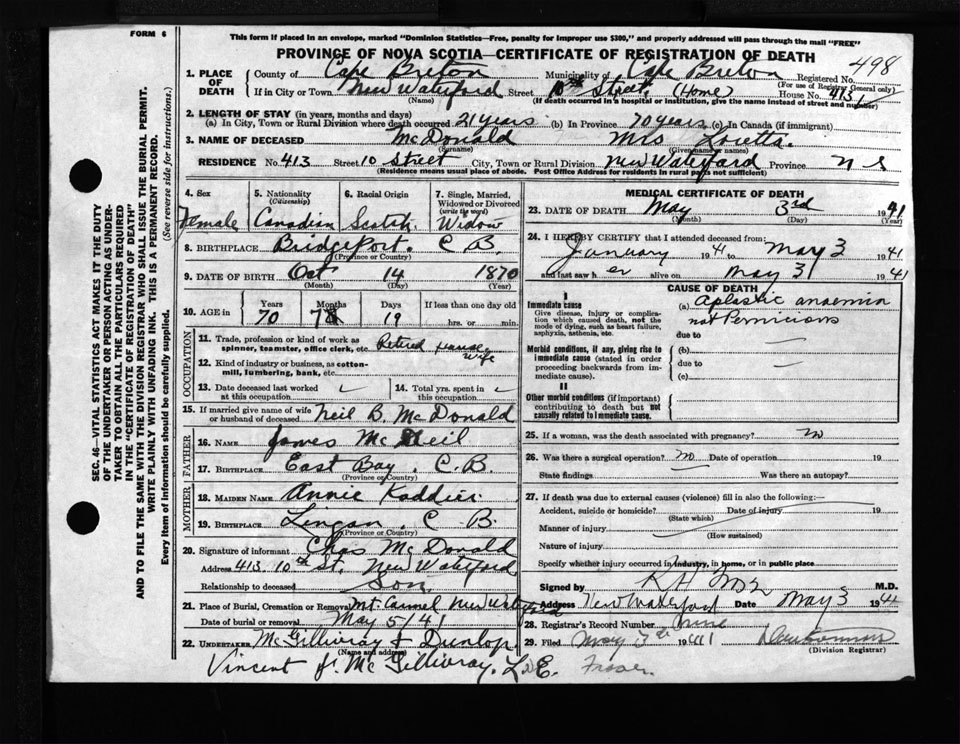 FORM 6
This form if placed in an envelope, marked "Dominion Statistics—Free, penalty for improper use $300," and properly addressed will pass through the mail "FREE"
PROVINCE OF NOVA SCOTIA—CERTIFICATE OF REGISTRATION OF DEATH
498
1. PLACE OF DEATH County of Cape Breton Municipality of Cape Breton Registered No.
(For use of Registrar General only)
If in City or Town New Waterford Street 10th Street (Home) House No. 413
(Name) (If death occurred in a hospital or institution, give the name instead of street and number)
2. LENGTH OF STAY (in years, months and days)
(a) In City, Town or Rural Division where death occurred 21 years (b) In Province 70 years (c) In Canada (if immigrant)
3. NAME OF DECEASED McDonald Mrs Loretta
(Surname) (Given name or names)
RESIDENCE No. 413 Street 10 Street City, Town or Rural Division New Waterford Province N S
(Residence means usual place of abode. Post Office Address for residents in rural parts not sufficient)
SEC. 46—VITAL STATISTICS ACT MAKES IT THE DUTY
OF THE UNDERTAKER OR PERSON ACTING AS UNDER-
TAKER TO OBTAIN ALL THE PARTICULARS REQUIRED
IN THE "CERTIFICATE OF REGISTRATION OF DEATH"
AND TO FILE THE SAME WITH THE DIVISION REGISTRAR WHO SHALL ISSUE THE BURIAL PERMIT.
WRITE PLAINLY WITH UNFADING INK. THIS IS A PERMANENT RECORD.
Every item of information should be carefully supplied. (See reverse side for instructions.)
4. Sex 5. Nationality (Citizenship) 6. Racial Origin 7. Single, Married, Widowed or Divorced (write the word)
Female Canadian Scotch Widow
8. BIRTHPLACE Bridgeport. C B.
(Province or Country)
9. DATE OF BIRTH Oct 14 1870
(Month) (Day) (Year)
10. AGE in Years Months Days If less than one day old
70 19 hrs. or min.
OCCUPATION
11. Trade, profession or kind of work as spinner, teamster, office clerk, etc. Retired House wife
12. Kind of industry or business, as cotton-mill, lumbering, bank, etc.
13. Date deceased last worked at this occupation
14. Total yrs. spent in this occupation
15. If married give name of wife or husband of deceased Neil B. McDonald
FATHER
16. NAME James McNeil
17. BIRTHPLACE East Bay. C.B.
(Province or Country)
MOTHER
18. MAIDEN NAME Annie
19. BIRTHPLACE Lingan. C B.
(Province or Country)
20. Signature of informant Chas McDonald
Address 413 10th St. New Waterford
Relationship to deceased Son
21. Place of Burial, Cremation or Removal Mt. Carmel New Waterford
Date of burial or removal May 5/41
22. UNDERTAKER McGillivray & Dunlop
(Name and address)
Vincent J. McGillivray. L E.
MEDICAL CERTIFICATE OF DEATH
23. DATE OF DEATH May 3rd 1941
(Month) (Day) (Year)
24. I HEREBY CERTIFY that I attended deceased from:
January 1941 to May 3 1941
and last saw h er alive on May 3 1941
CAUSE OF DEATH
I
Immediate cause
Give disease, injury or complication which caused death, not the mode of dying, such as heart failure, asphyxia, asthenia, etc.
(a) aplastic anaemia
not Pernicious
due to
Morbid conditions, if any, giving rise to immediate cause (stated in order proceeding backwards from immediate cause).
(b)
due to
(c)
II
Other morbid conditions (if important) contributing to death but not causally related to immediate cause.
25. If a woman, was the death associated with pregnancy? no
26. Was there a surgical operation? no Date of operation 19
State findings Was there an autopsy?
27. If death was due to external causes (violence) fill in also the following:—
Accident, suicide or homicide? Date of injury 19
(State which)
Manner of injury
(How sustained)
Nature of injury
Specify whether injury occurred in industry, in home, or in public place
Signed by M.D.
Address New Waterford Date May 3 1941
28. Registrar's Record Number nine
29. Filed May 7th 1941
(Division Registrar)
Fraser.